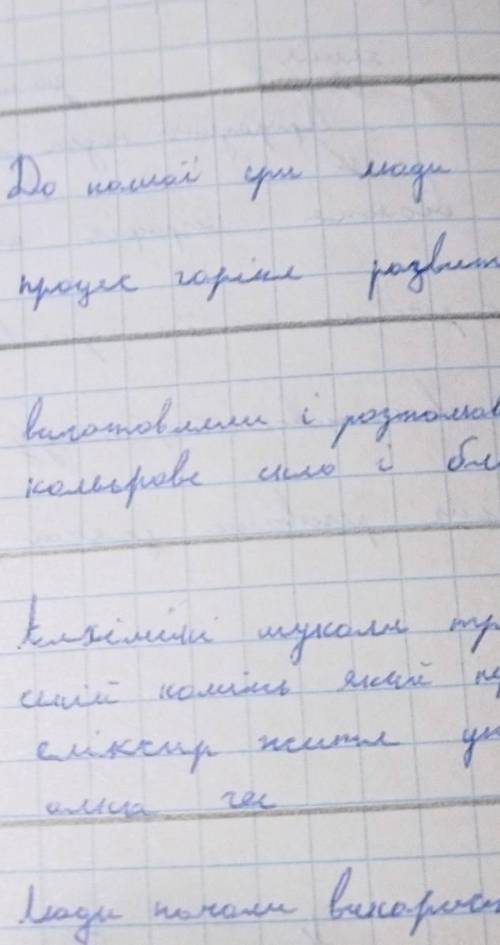 До нашої ери люди
процес горіня розвит
виготовляли і розмальов
кольорове скло і бл
Алхіміки шукали
ський камінь який
еліксир життя
Люди почали використ